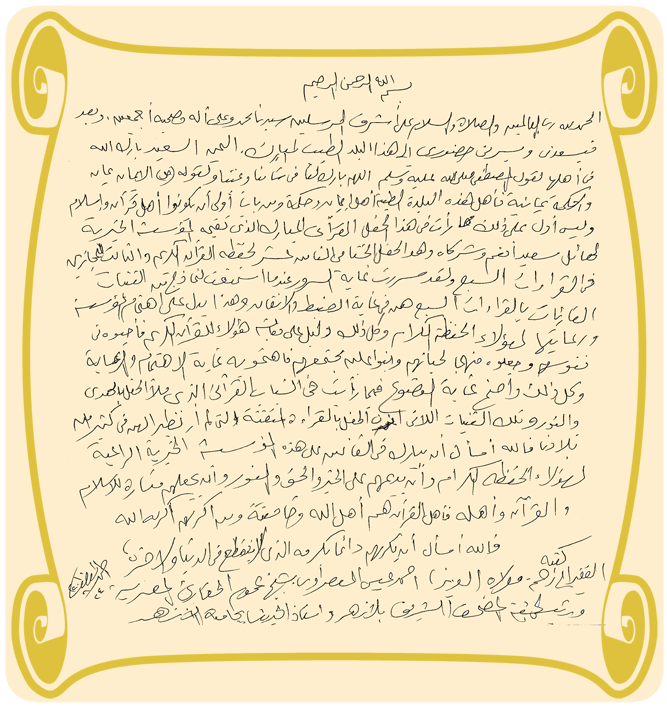 بسم الله الرحمن الرحيم
الحمد لله رب العالمين والصلاة والسلام على أشرف المرسلين سيدنا محمد وعلى آله وصحبه أجمعين. وبعد
فيسعدنى ويسرنى حضورى إلى هذا البلد الطيب المبارك. اليمن السعيد بارك الله
فى أهلها لقول المصطفى صلى الله عليه وسلم اللهم بارك لنا فى شامنا ويمننا ولقوله الإيمان يمان
والحكمة يمانية فأهل هذه البلدة الطيبة أهل إيمان وحكمة ومن باب أولى أن يكونوا أهل قرآن وإسلام
وليس أدل على ذلك مما رأيت فى هذا الحفل القرآنى المبارك الذى تقيمه المؤسسة الخيرية
لهائل سعيد أنعم وشركاه وهذا الحفل الختامى الثامن عشر لحفظة القرآن الكريم والثالث
فى القراءات السبع ولقد سررت غاية السرور عندما استمعت نماذج من الفتيات
القارئات بالقراءات السبع هن فى غاية الضبط والإتقان وهذا يدل على اهتمام المؤسسة
ورعايتها لهؤلاء الحفظة الكرام وكل ذلك دليل على محبة هؤلاء للقرآن الكريم فأحيوه فى
نفوسهم وجعلوه منهجا لحياتهم
وكل ذلك واضح غاية الوضوح فيما رأيت فى الشباب القرآنى الذى ملأ الحفل بالهدى
والنور وتلك الفتيات اللاتى الحفل بالقراءة المتقنة التى لم أر نظير لهن فى كثير من
بلادنا فالله أسأل أن يبارك فى القائمين على هذه المؤسسة الخيرية الراعية
لهؤلاء الحفظة الكرام وأن يديمهم على الخير والحق والنور وأن يجعلهم منارة للإسلام
والقرآن وأهله فأهل القرآن هم أهل الله وخاصته ومن أكرمهم أكرمه الله
فالله أسأل أن يكرمهم دائما بكرمه الذى لا ينقطع فى الدنيا والآخرة،
كتبه
الفقير إلى مولاه العزيز أحمد عيسى المعصراوى شيخ عموم المقارئ المصرية
ورئيس لجنة المصحف الشريف بالأزهر وأستاذ الحديث بجامعة الأزهر